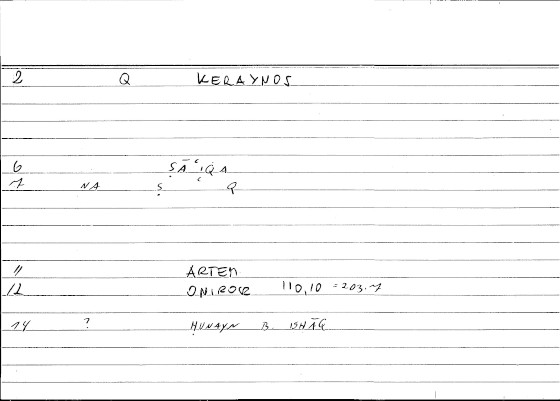 2 Q KERAYNOS
6 ṢĀʿIQA
7 NA Ṣ ʿ Q
11 ARTEM
12 ONIROCR 110,10 = 203.7
14 ? ḤUNAYN B. ISḤĀQ